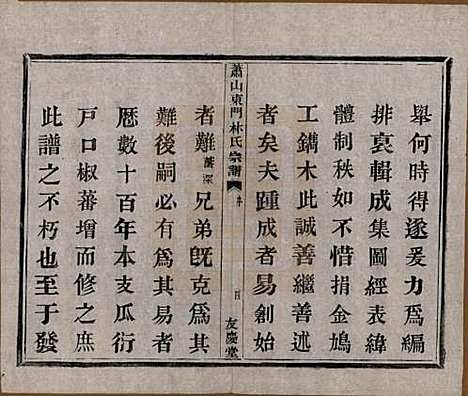 舉何時得遂爰力為編
排裒輯成集圖經表緯
體制秩如不惜捐金鳩
工鐫木此誠善繼善述
者矣夫踵成者易創始
蕭山東門林氏宗譜
友慶堂
者難兄弟既克為其
難後嗣必有為其易者
歷數十百年本支瓜衍
戶口椒蕃增而修之庶
此譜之不朽也至于發